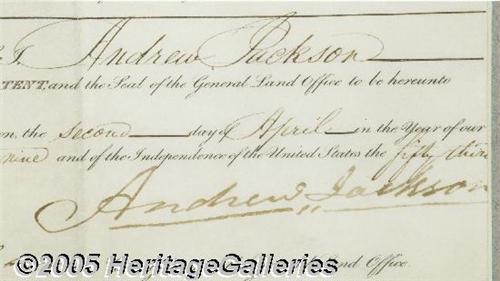 Andrew Jackson
TENT, and the Seal of the General Land Office to be hereunto
on, the second day of April in the Year of our
nine and of the Independence of the United States the fifty third
Andrew Jackson
nd Office.
©2005 HeritageGalleries